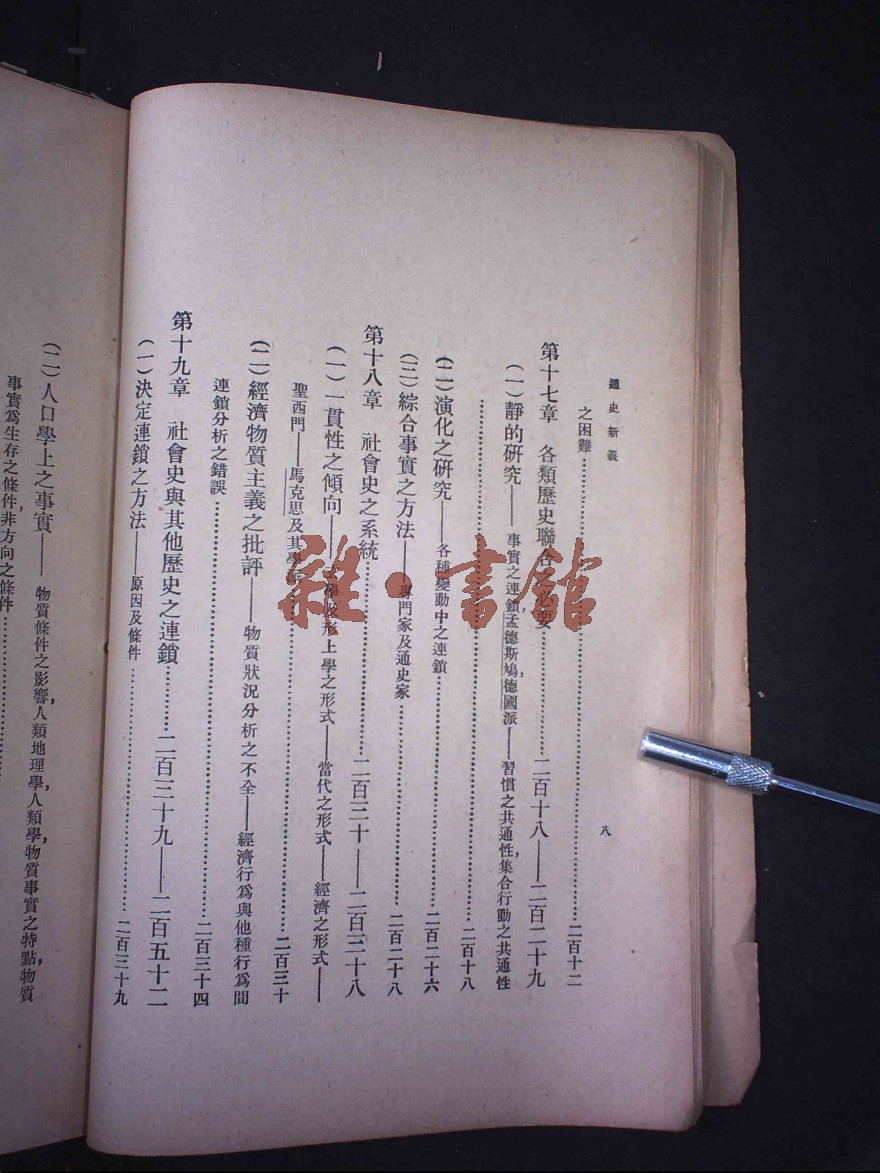 通史新義
八
之困難……二百十二
第十七章 各類歷史聯合之必要……二百十八——二百二十九
(一)靜的研究——事實之連鎖,孟德斯鳩,德國派——習慣之共通性,集合行動之共通性
……二百十八
(二)演化之研究——各種變動中之連鎖……二百二十六
(三)綜合事實之方法——專門家及通史家……二百二十八
第十八章 社會史之系統……二百三十——二百三十八
(一)一貫性之傾向——學及形上學之形式——當代之形式——經濟之形式——
聖西門——馬克思及其學派……二百三十
(二)經濟物質主義之批評——物質狀況分析之不全——經濟行為與他種行為間
連鎖分析之錯誤……二百三十四
第十九章 社會史與其他歷史之連鎖……二百三十九——二百五十二
(一)決定連鎖之方法——原因及條件……二百三十九
(二)人口學上之事實——物質條件之影響,人類地理學,人類學,物質事實之特點,物質
事實為生存之條件,非方向之條件……
雜·書館